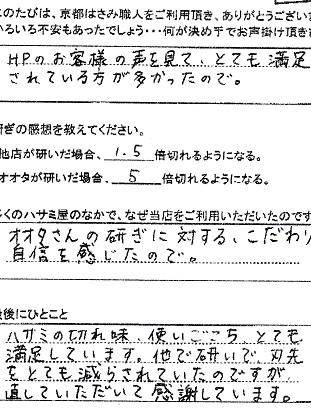 このたびは、京都はさみ職人をご利用頂き、ありがとうござい
いろいろ不安もあったでしょう・・・何が決め手でお声掛け頂き
HPのお客様の声を見て、とても満足
されている方が多かったので。
研ぎの感想を教えてください。
他店が研いだ場合、1.5倍切れるようになる。
オオタが研いだ場合、5倍切れるようになる。
多くのハサミ屋のなかで、なぜ当店をご利用いただいたのです
オオタさんの研ぎに対する、こだわり
自信を感じたので。
最後にひとこと
ハサミの切れ味、使いごこち、とても
満足しています。他で研いで、刃先
をとても減らされていたのですが
直していただいて感謝しています。